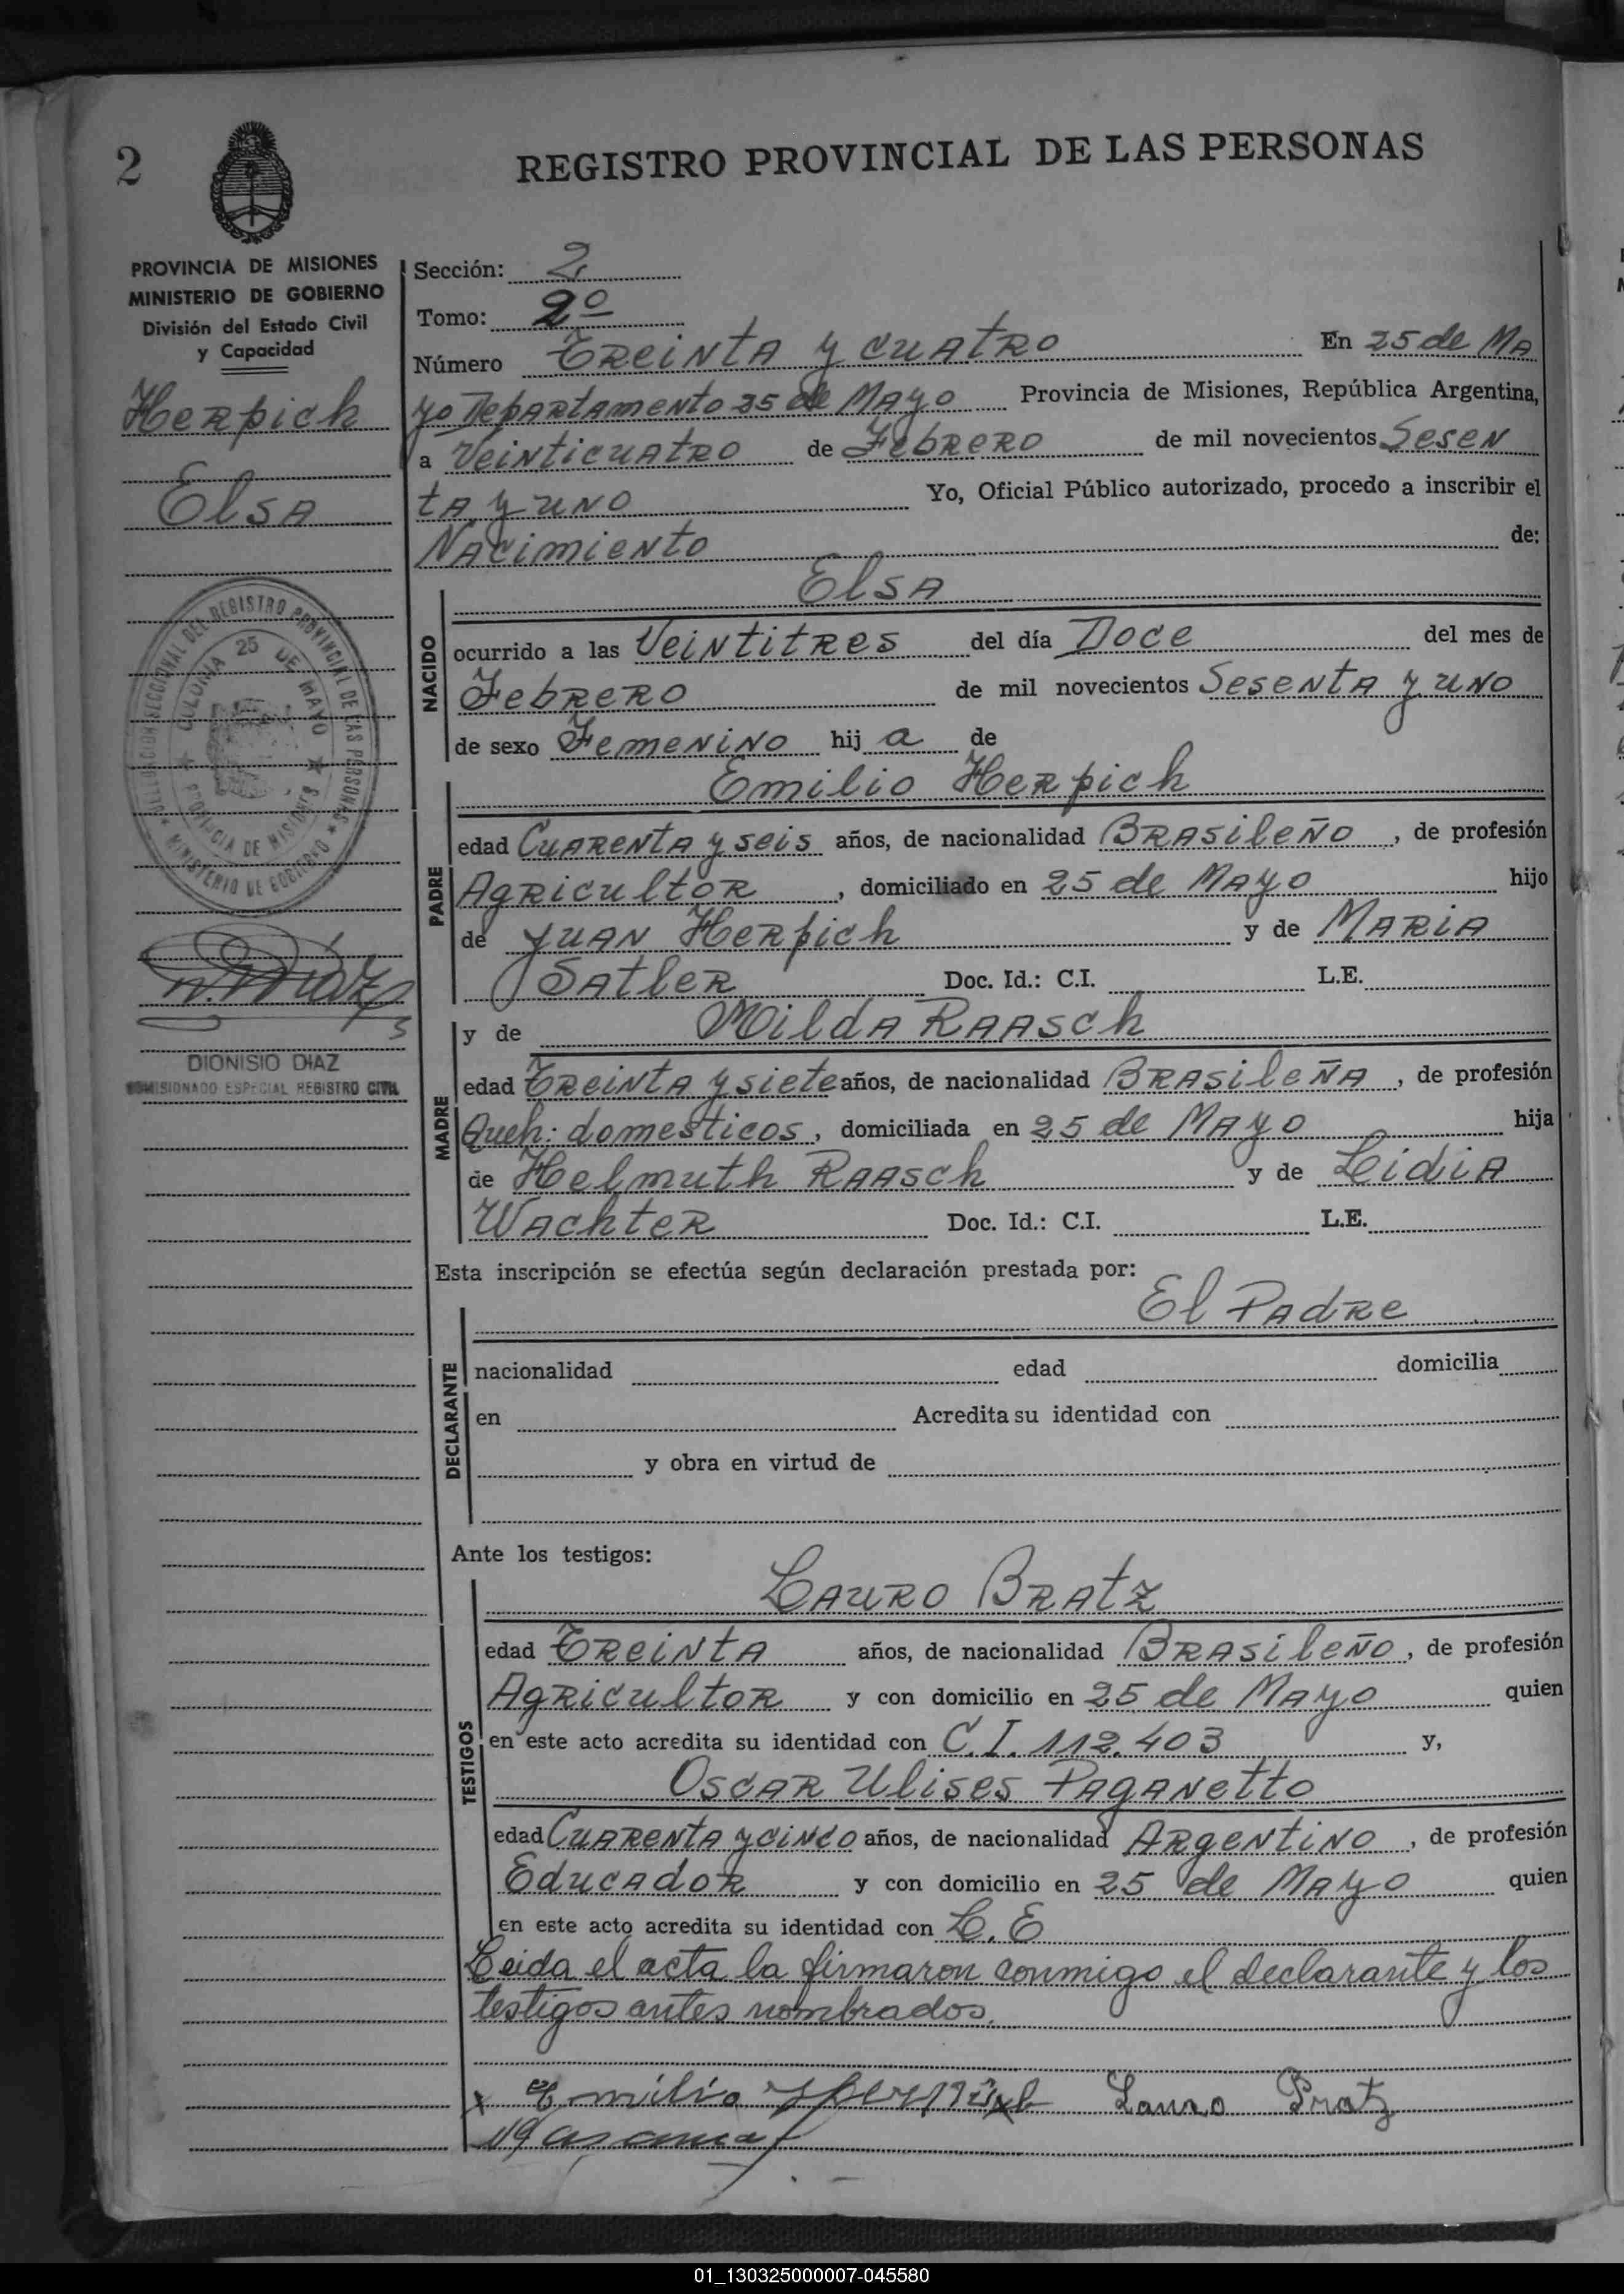 2
REGISTRO PROVINCIAL DE LAS PERSONAS
PROVINCIA DE MISIONES
MINISTERIO DE GOBIERNO
División del Estado Civil
y Capacidad
Herpich
Elsa
COLONIA 25 DE MAYO
PROVINCIA DE MISIONES
DEL REGISTRO PROVINCIAL DE LAS PERSONAS
MINISTERIO DE GOBIERNO
DIONISIO DIAZ
COMISIONADO ESPECIAL REGISTRO CIVIL
Sección: 2
Tomo: 2º
Número Treinta y cuatro En 25 de Ma
yo Departamento 25 de Mayo Provincia de Misiones, República Argentina,
a Veinticuatro de Febrero de mil novecientos Sesen
ta y uno Yo, Oficial Público autorizado, procedo a inscribir el
Nacimiento de:
NACIDO
Elsa
ocurrido a las Veintitres del día Doce del mes de
Febrero de mil novecientos Sesenta y uno
de sexo Femenino hij a de
PADRE
Emilio Herpich
edad Cuarenta y seis años, de nacionalidad Brasileño, de profesión
Agricultor, domiciliado en 25 de Mayo hijo
de Juan Herpich y de Maria
Satler Doc. Id.: C.I. L.E.
MADRE
y de Milda Raasch
edad Treinta y siete años, de nacionalidad Brasileña, de profesión
Queh: domesticos, domiciliada en 25 de Mayo hija
de Helmuth Raasch y de Lidia
Wachter Doc. Id.: C.I. L.E.
Esta inscripción se efectúa según declaración prestada por:
El Padre
DECLARANTE
nacionalidad edad domicilia
en Acredita su identidad con
y obra en virtud de
Ante los testigos:
TESTIGOS
Lauro Bratz
edad Treinta años, de nacionalidad Brasileño, de profesión
Agricultor y con domicilio en 25 de Mayo quien
en este acto acredita su identidad con C.I. 112.403 y,
Oscar Ulises Paganetto
edad Cuarenta y cinco años, de nacionalidad Argentino, de profesión
Educador y con domicilio en 25 de Mayo quien
en este acto acredita su identidad con L.E
Leida el acta la firmaron conmigo el declarante y los
testigos antes nombrados.
x Emilio Herpich Lauro Pratz
01_130325000007-045580